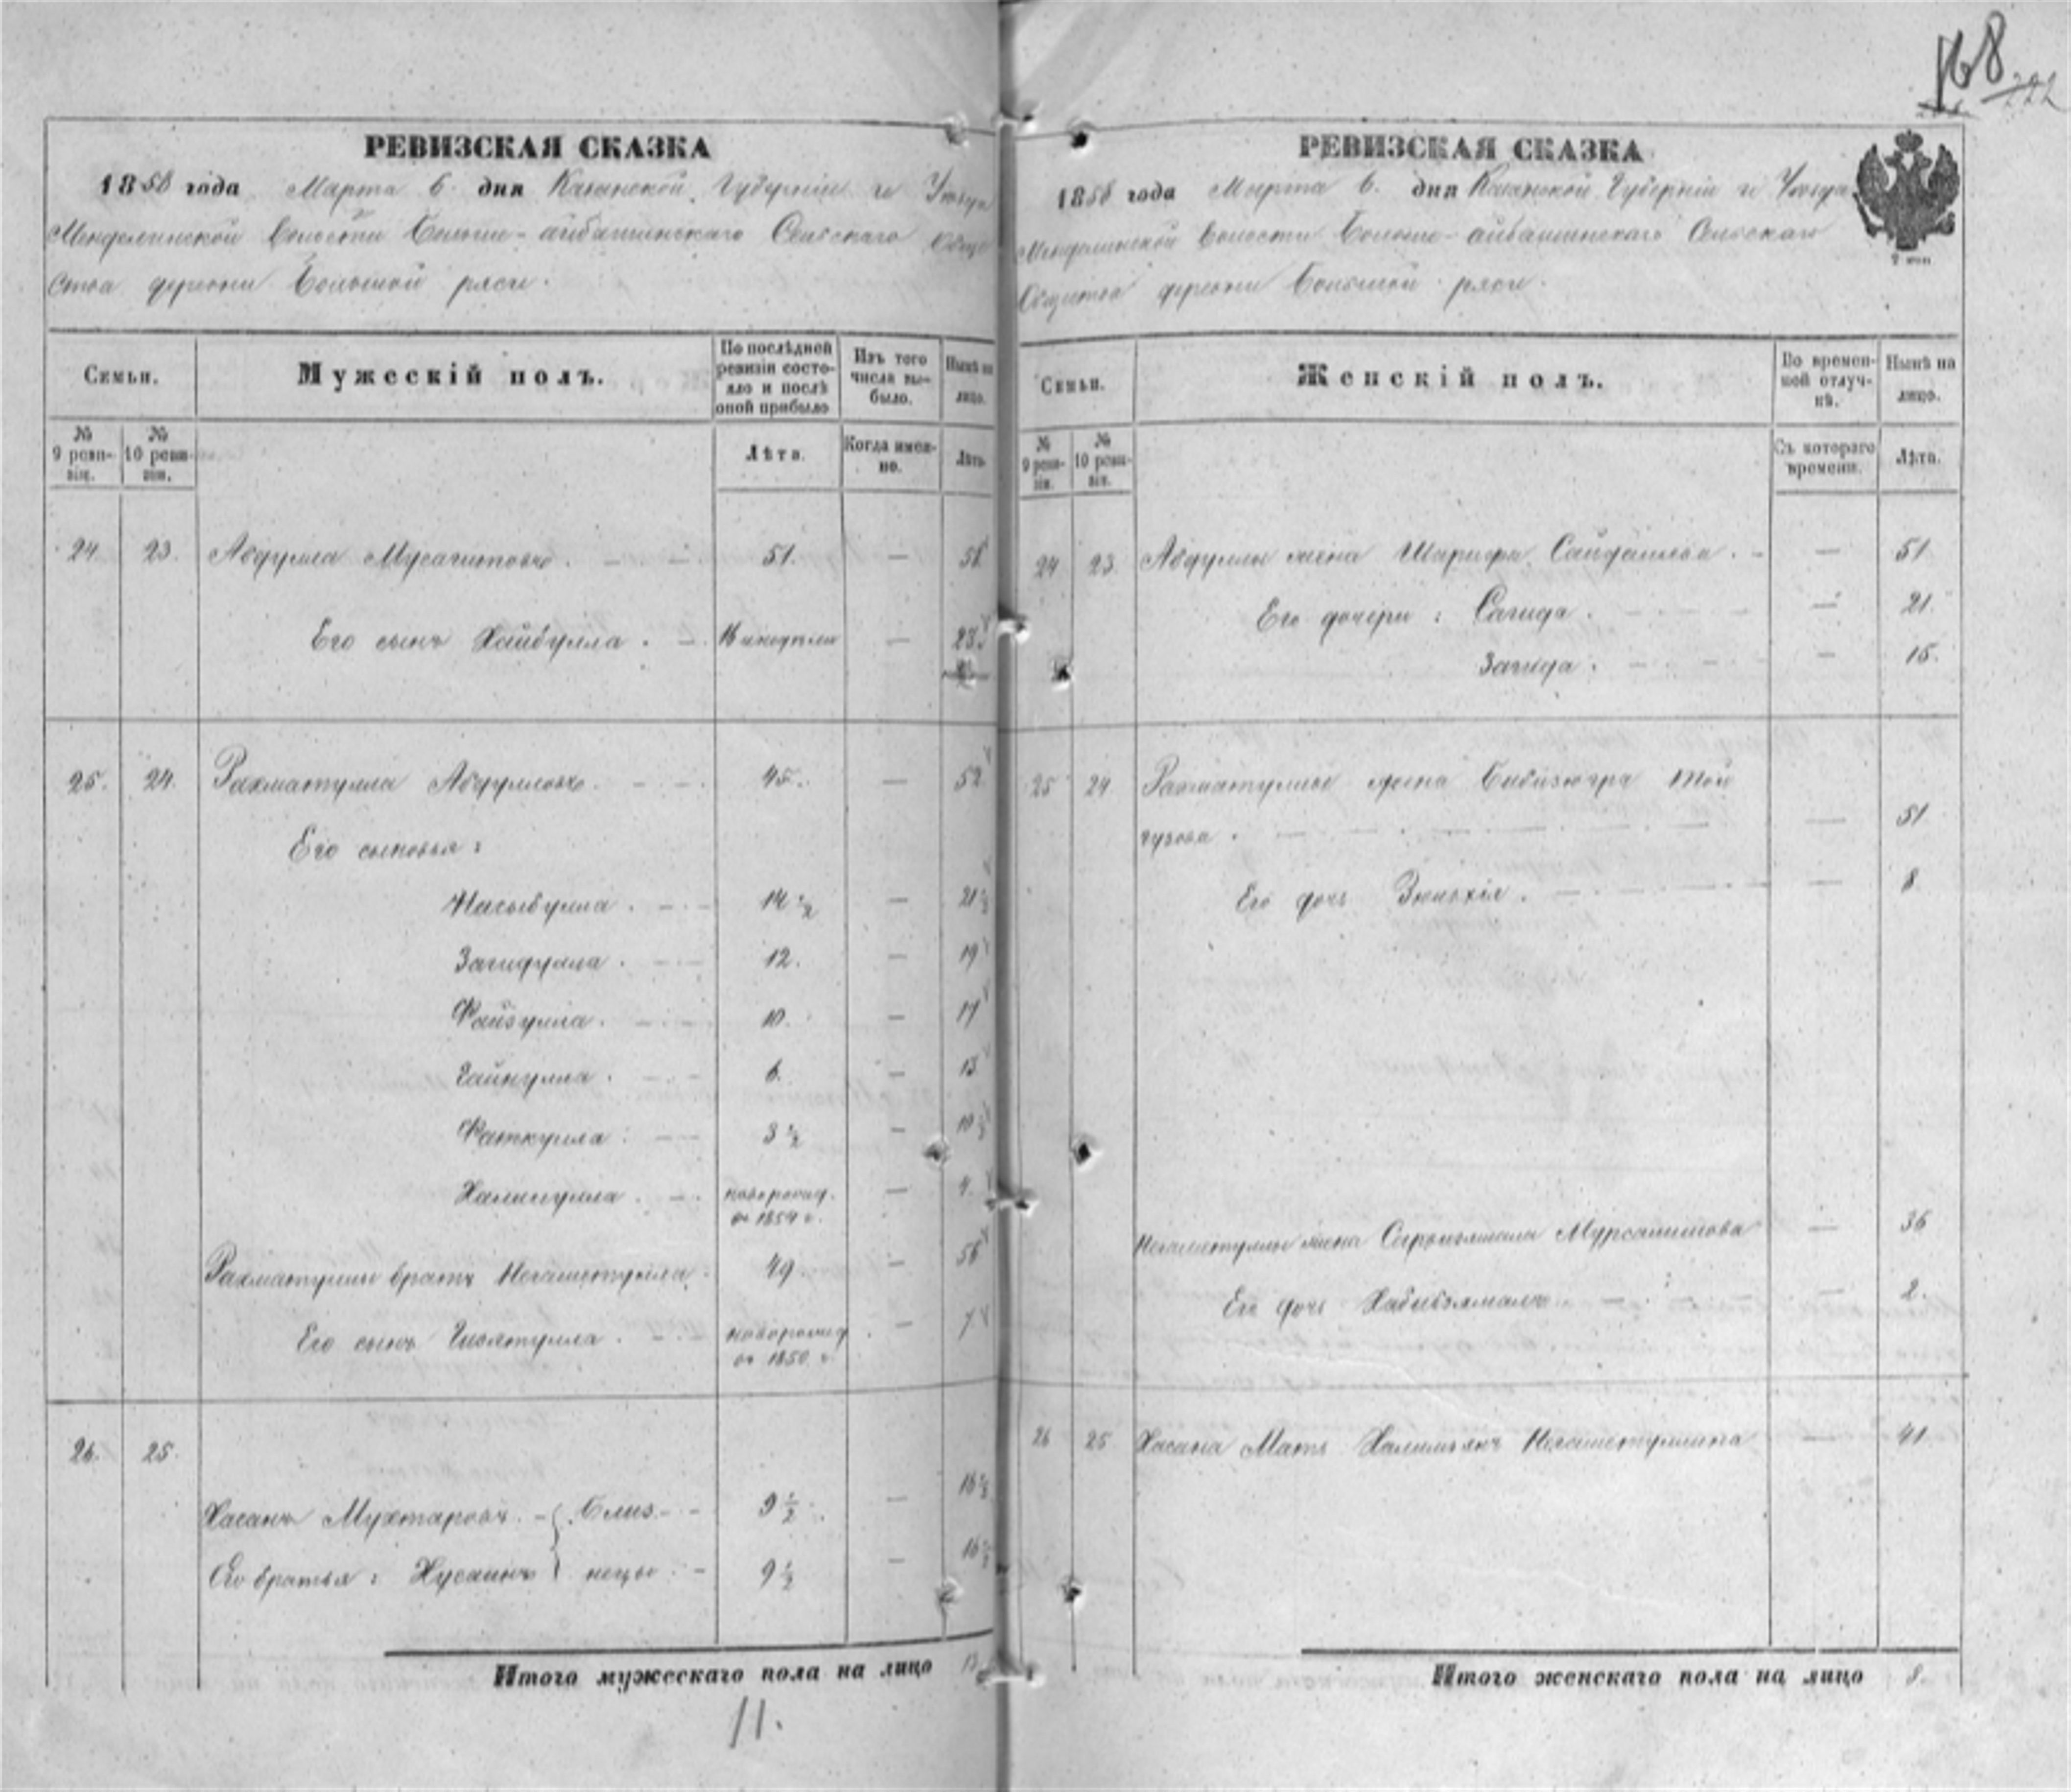 168
222
РЕВИЗСКАЯ СКАЗКА
1858 года Марта 6 дня Казанской Губернии и Уезда
Менделинской волости Больше-айбашинскаго Сельскаго Обще
ства деревни Большой ряси.
Семьи.
Мужескій полъ.
По послѣдней ревизіи состояло и послѣ оной прибыло
Изъ того числа выбыло.
Нынѣ на лицо.
№ 9 ревизіи.
№ 10 ревизіи.
Лѣта.
Когда именно.
Лѣта.
24. 23. Абдулла Мусагитовъ. — 51. — 58
Его сынъ Хайбулла. — 16 — 23
25. 24. Рахматулла Абдулловъ. — 45. — 52
Его сыновья:
Насыбулла. — 14 1/2 — 21 1/2
Загидулла. — 12. — 19
Файзулла. — 10. — 17
Гайнулла. — 6. — 13
Фаткулла. — 3 1/2 — 10 1/2
Халиулла. — новорожд. — 4.
въ 1854 г.
Рахматуллы братъ Негаметулла. 49 — 56
Его сынъ — новорожд. — 7
въ 1850 г.
26. 25.
Хасанъ Мухтаровъ. — Близ- — 9 1/2 — 16 1/2
Его братья: Хусаинъ нецы. — 9 1/2 — 16 1/2
Итого мужескаго пола на лицо 13
11.
РЕВИЗСКАЯ СКАЗКА
1858 года Марта 6. дня Казанской Губерніи и Уезда
Менделинской волости Больше-айбашинскаго Сельскаго
Общества деревни Большой ряси.
Семьи.
Женскій полъ.
Во временной отлучкѣ.
Нынѣ на лицо.
№ 9 ревизіи.
№ 10 ревизіи.
Съ котораго времени.
Лѣта.
24 23. Абдуллы жена Шарифа Сайдашева. — — 51
Его дочери: Сагида. — — 21.
Загида. — — 15.
25 24 Рахматуллы жена Бибизюгра Той
гузова. — — 51
Его дочь Зюлхія. — — 8
Негаметуллы жена — 36
Его дочь Хабибзямалъ — — 2.
26 25 Хасана Мать Негаметуллина — 41
Итого женскаго пола на лицо 8.